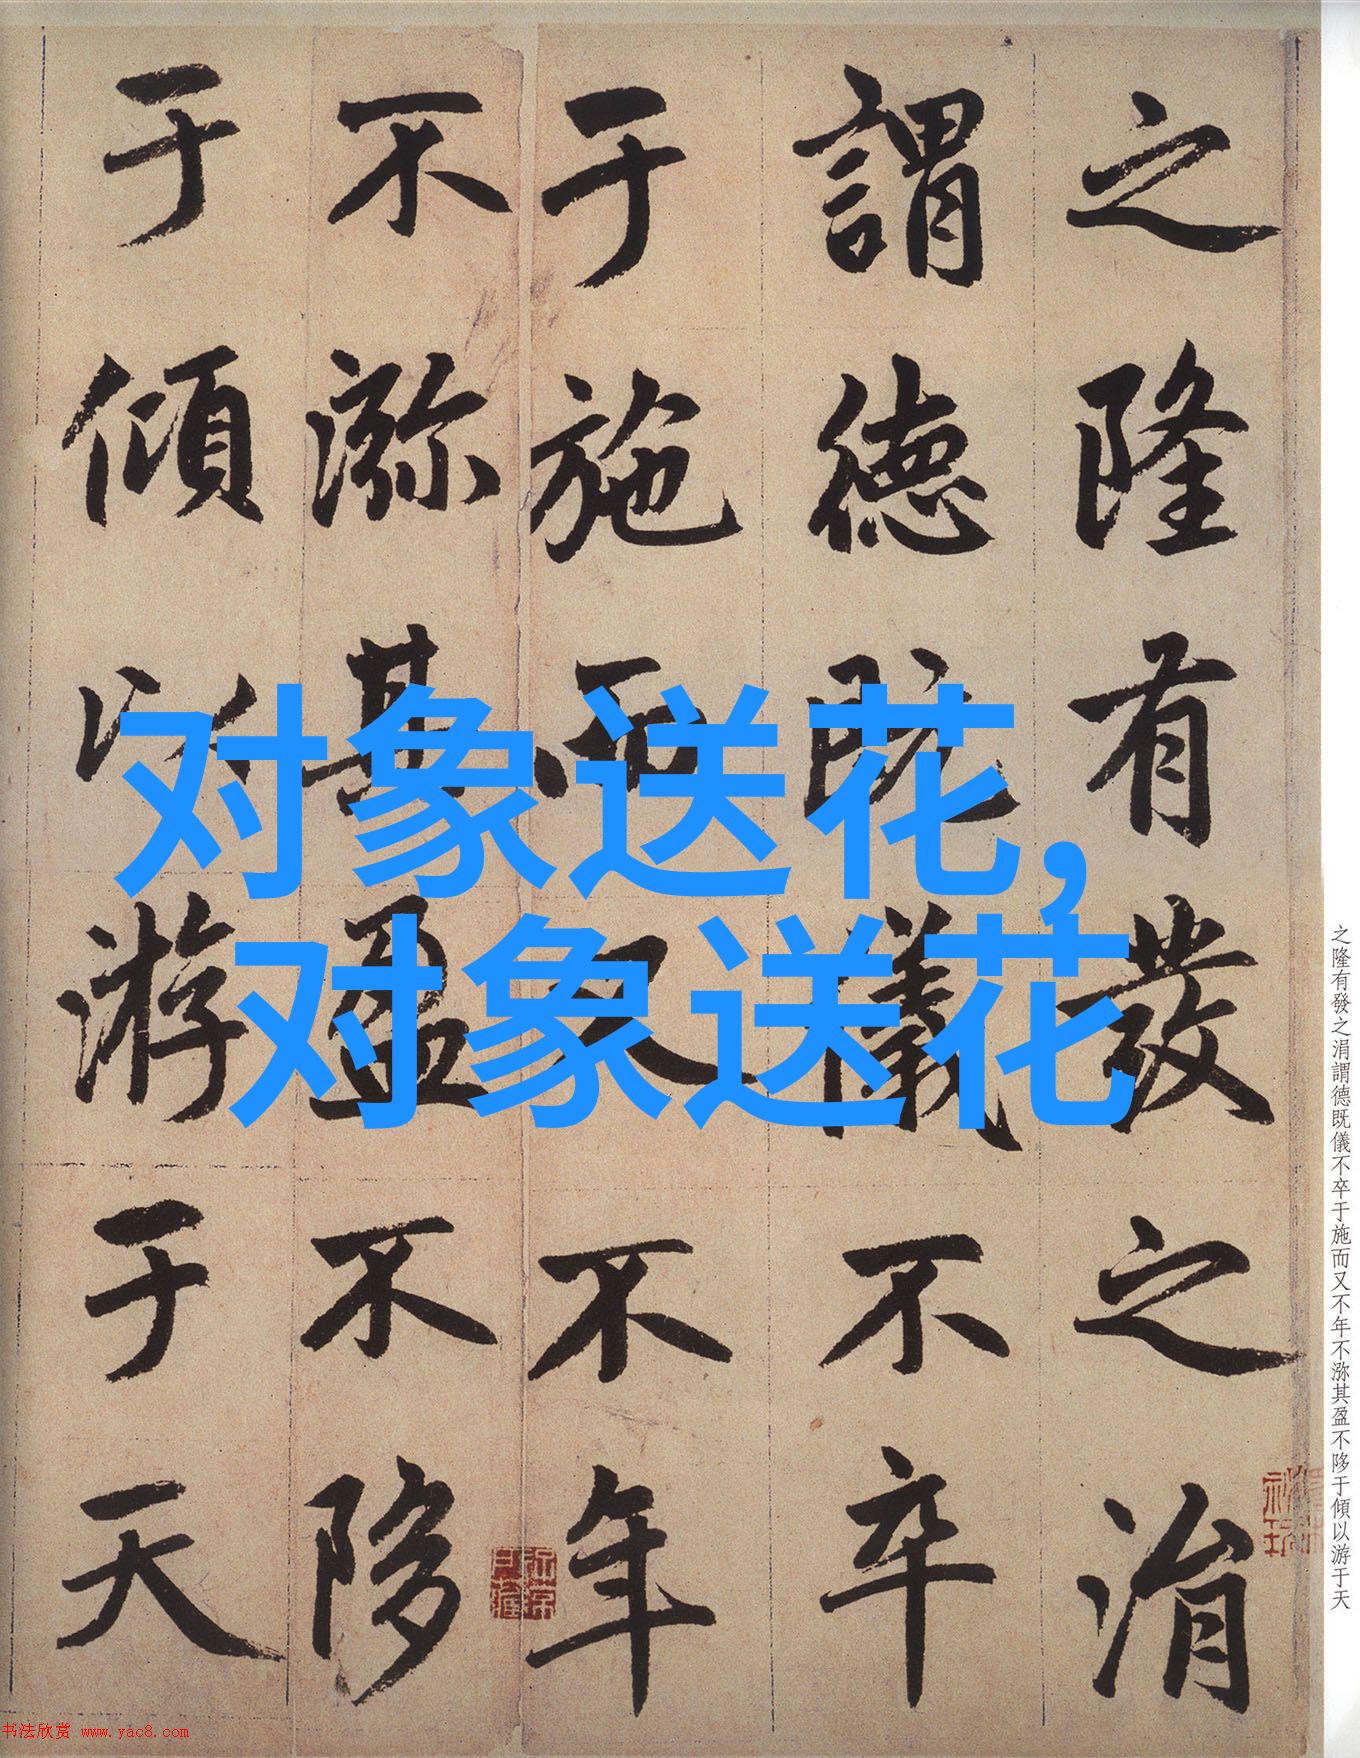 之隆有發之涓
謂德既儀不卒
于施而又不年
不㳽其盈不陊
于傾以游于天
对象送花，
对象送花
之隆有發之涓謂德既儀不卒于施而又不年不㳽其盈不陊于傾以游于天
书法欣赏 www.yac8.com